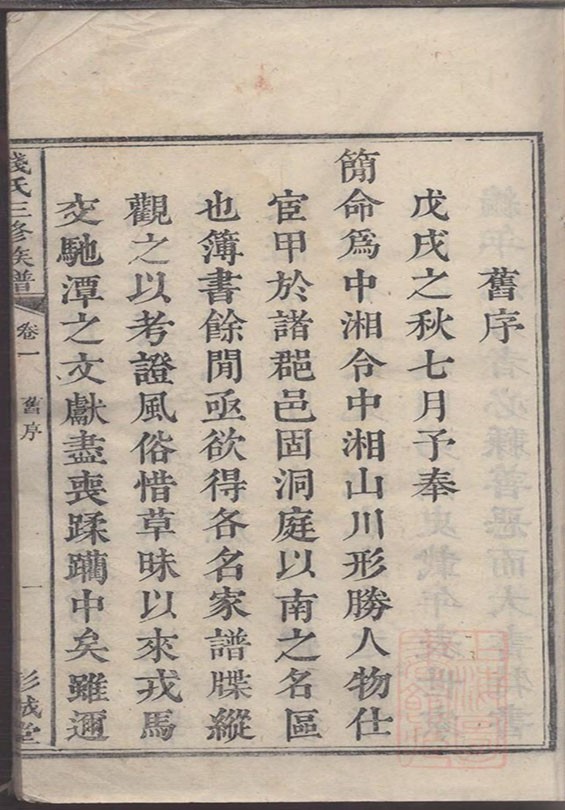 舊序
戊戌之秋七月予奉
簡命爲中湘令中湘山川形勝人物仕
宦甲於諸郡邑固洞庭以南之名區
也簿書餘閒亟欲得各名家譜牒縱
觀之以考證風俗惜草昧以來戎馬
交馳潭之文獻盡喪蹂躪中矣雖邇
錢氏三修族譜
卷一
舊序
一
彭城堂